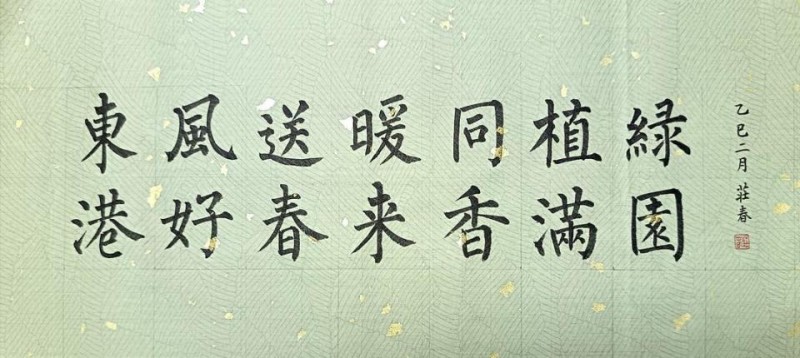 東風送暖同植緑
港好春来香滿園
乙巳二月 莊春